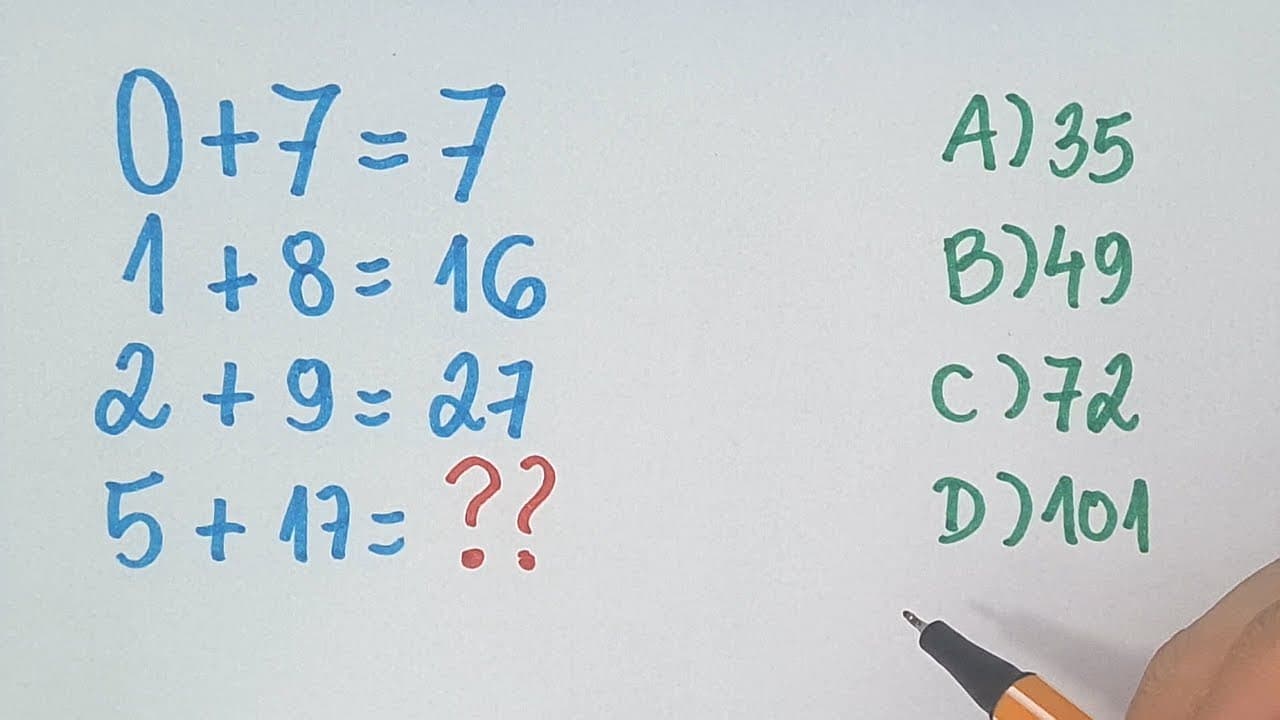 0+7=7
1+8=16
2+9=27
5+17=??
A)35
B)49
C)72
D)101